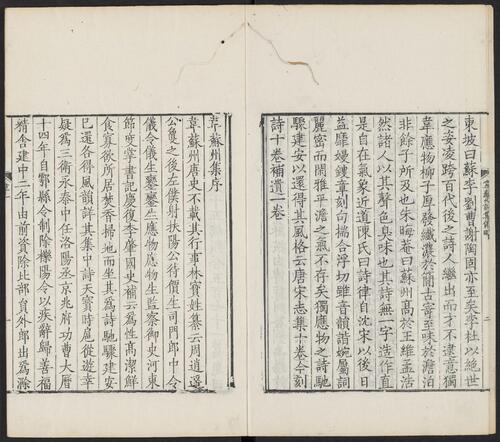 東坡曰蘇李劉曹謝陶固亦至矣李杜以絕世
之姿凌跨百代後之詩人繼出而才不逮意獨
韋應物柳子厚發纖穠於簡古寄至味於澹泊
非餘子所及也朱晦菴曰蘇州高於王維孟浩
然諸人以其聲色臭味也其詩無一字造作直
是自在氣象近道陳氏曰詩律自沈宋以後日
益靡嫚鏤章刻句揣合浮切雖音韻諧婉屬詞
麗密而閑雅平澹之氣不存矣獨應物之詩馳
驟建安以還得其風格云唐宋志集十卷今刻
詩十卷補遺一卷
韋蘇州集序
韋蘇州唐史不載其行事林寶姓纂云周逍遙
公敻之後左僕射扶陽公待價生司門郎中令
儀令儀生鑾鑾生應物應物生監察御史河東
節度掌書記慶復李肇國史補云為性高潔鮮
食寡欲所居焚香掃地而坐其為詩馳驟建安
已還各得風韻詳其集中詩天寶時扈從遊幸
疑為三衛永泰中任洛陽丞京兆府功曹大曆
十四年自鄠縣令制除櫟陽令以疾辭歸善福
精舍建中二年由前資除比部員外郎出為滁